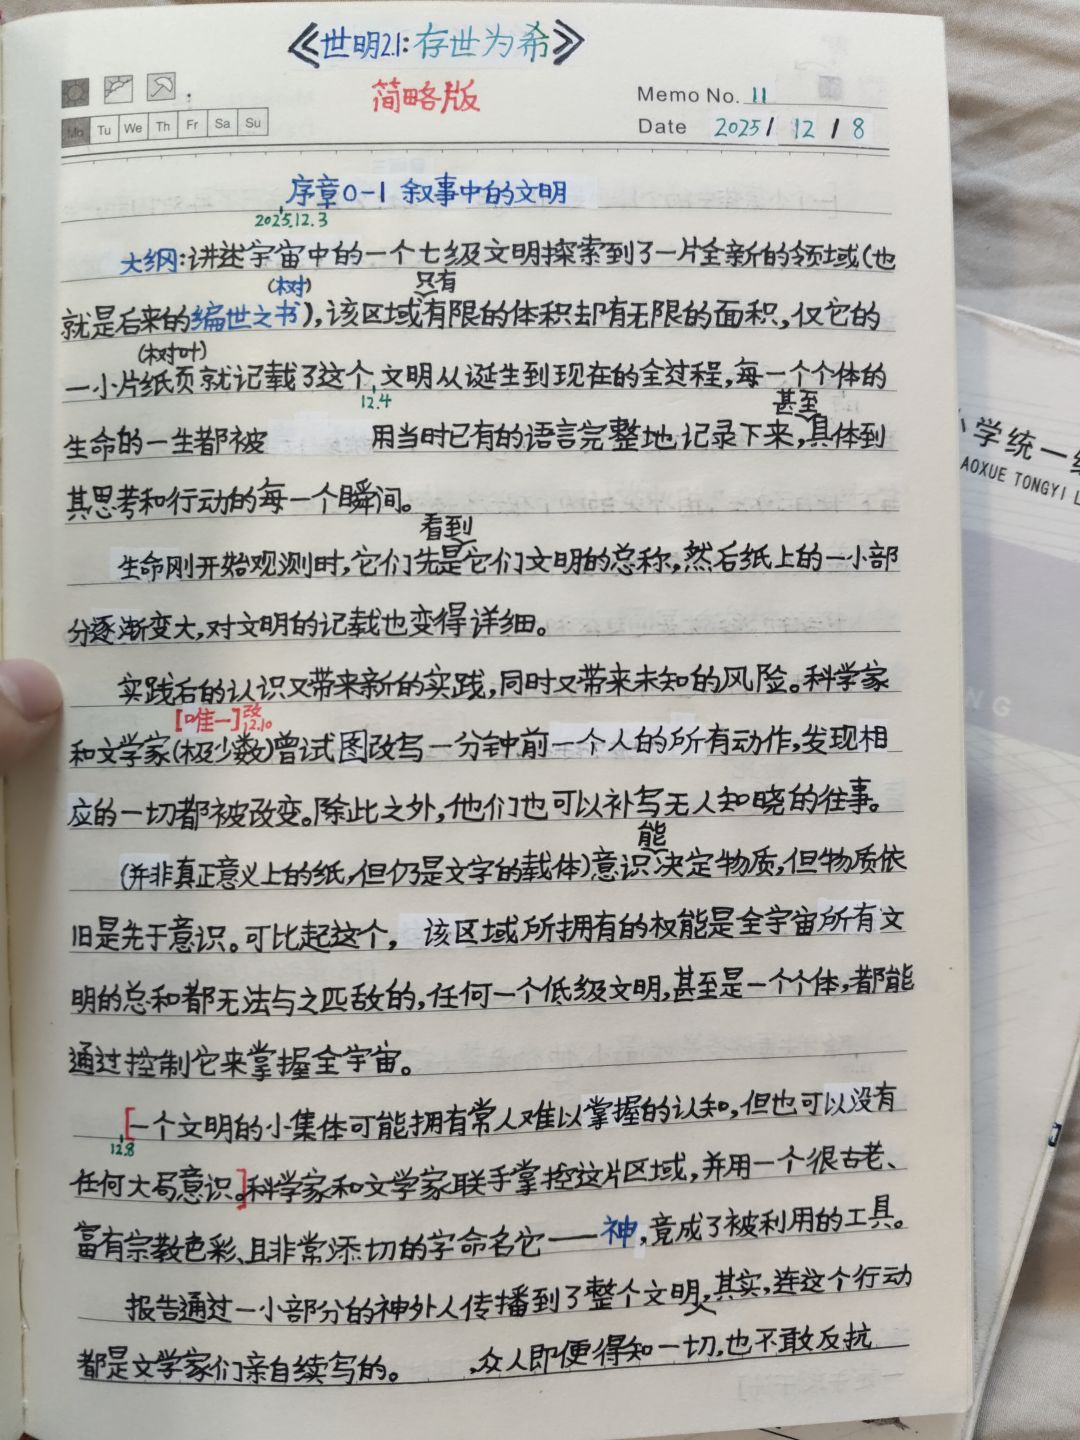 《世明2.1:存世为希》
简略版
Memo No. 11
Mo Tu We Th Fr Sa Su
Date 2025/12/8
序章0-1 叙事中的文明
2025.12.3
大纲:讲述宇宙中的一个七级文明探索到了一片全新的领域(也
(树) 只有
就是后来的编世之书),该区域有限的体积却有无限的面积,仅它的
(树叶)
一小片纸页就记载了这个文明从诞生到现在的全过程,每一个个体的
12.4 甚至
生命的一生都被 用当时已有的语言完整地记录下来,具体到
其思考和行动的每一个瞬间。
看到
生命刚开始观测时,它们先是它们文明的总称,然后纸上的一小部
分逐渐变大,对文明的记载也变得详细。
实践后的认识又带来新的实践,同时又带来未知的风险。科学家
[唯一]改12.10
和文学家(极少数)曾试图改写一分钟前一个人的所有动作,发现相
应的一切都被改变。除此之外,他们也可以补写无人知晓的往事。
能
(并非真正意义上的纸,但仍是文字的载体)意识决定物质,但物质依
旧是先于意识。可比起这个, 该区域所拥有的权能是全宇宙所有文
明的总和都无法与之匹敌的,任何一个低级文明,甚至是一个个体,都能
通过控制它来掌握全宇宙。
[一个文明的小集体可能拥有常人难以掌握的认知,但也可以没有
12.8
任何大局意识。]科学家和文学家联手掌控这片区域,并用一个很古老、
富有宗教色彩、且非常添切的字命名它——神,竟成了被利用的工具。
报告通过一小部分的神外人传播到了整个文明,其实,连这个行动
人
都是文学家们亲自续写的。 ,众人即便得知一切,也不敢反抗
小学统一
AOXUE TONGYI L
NG